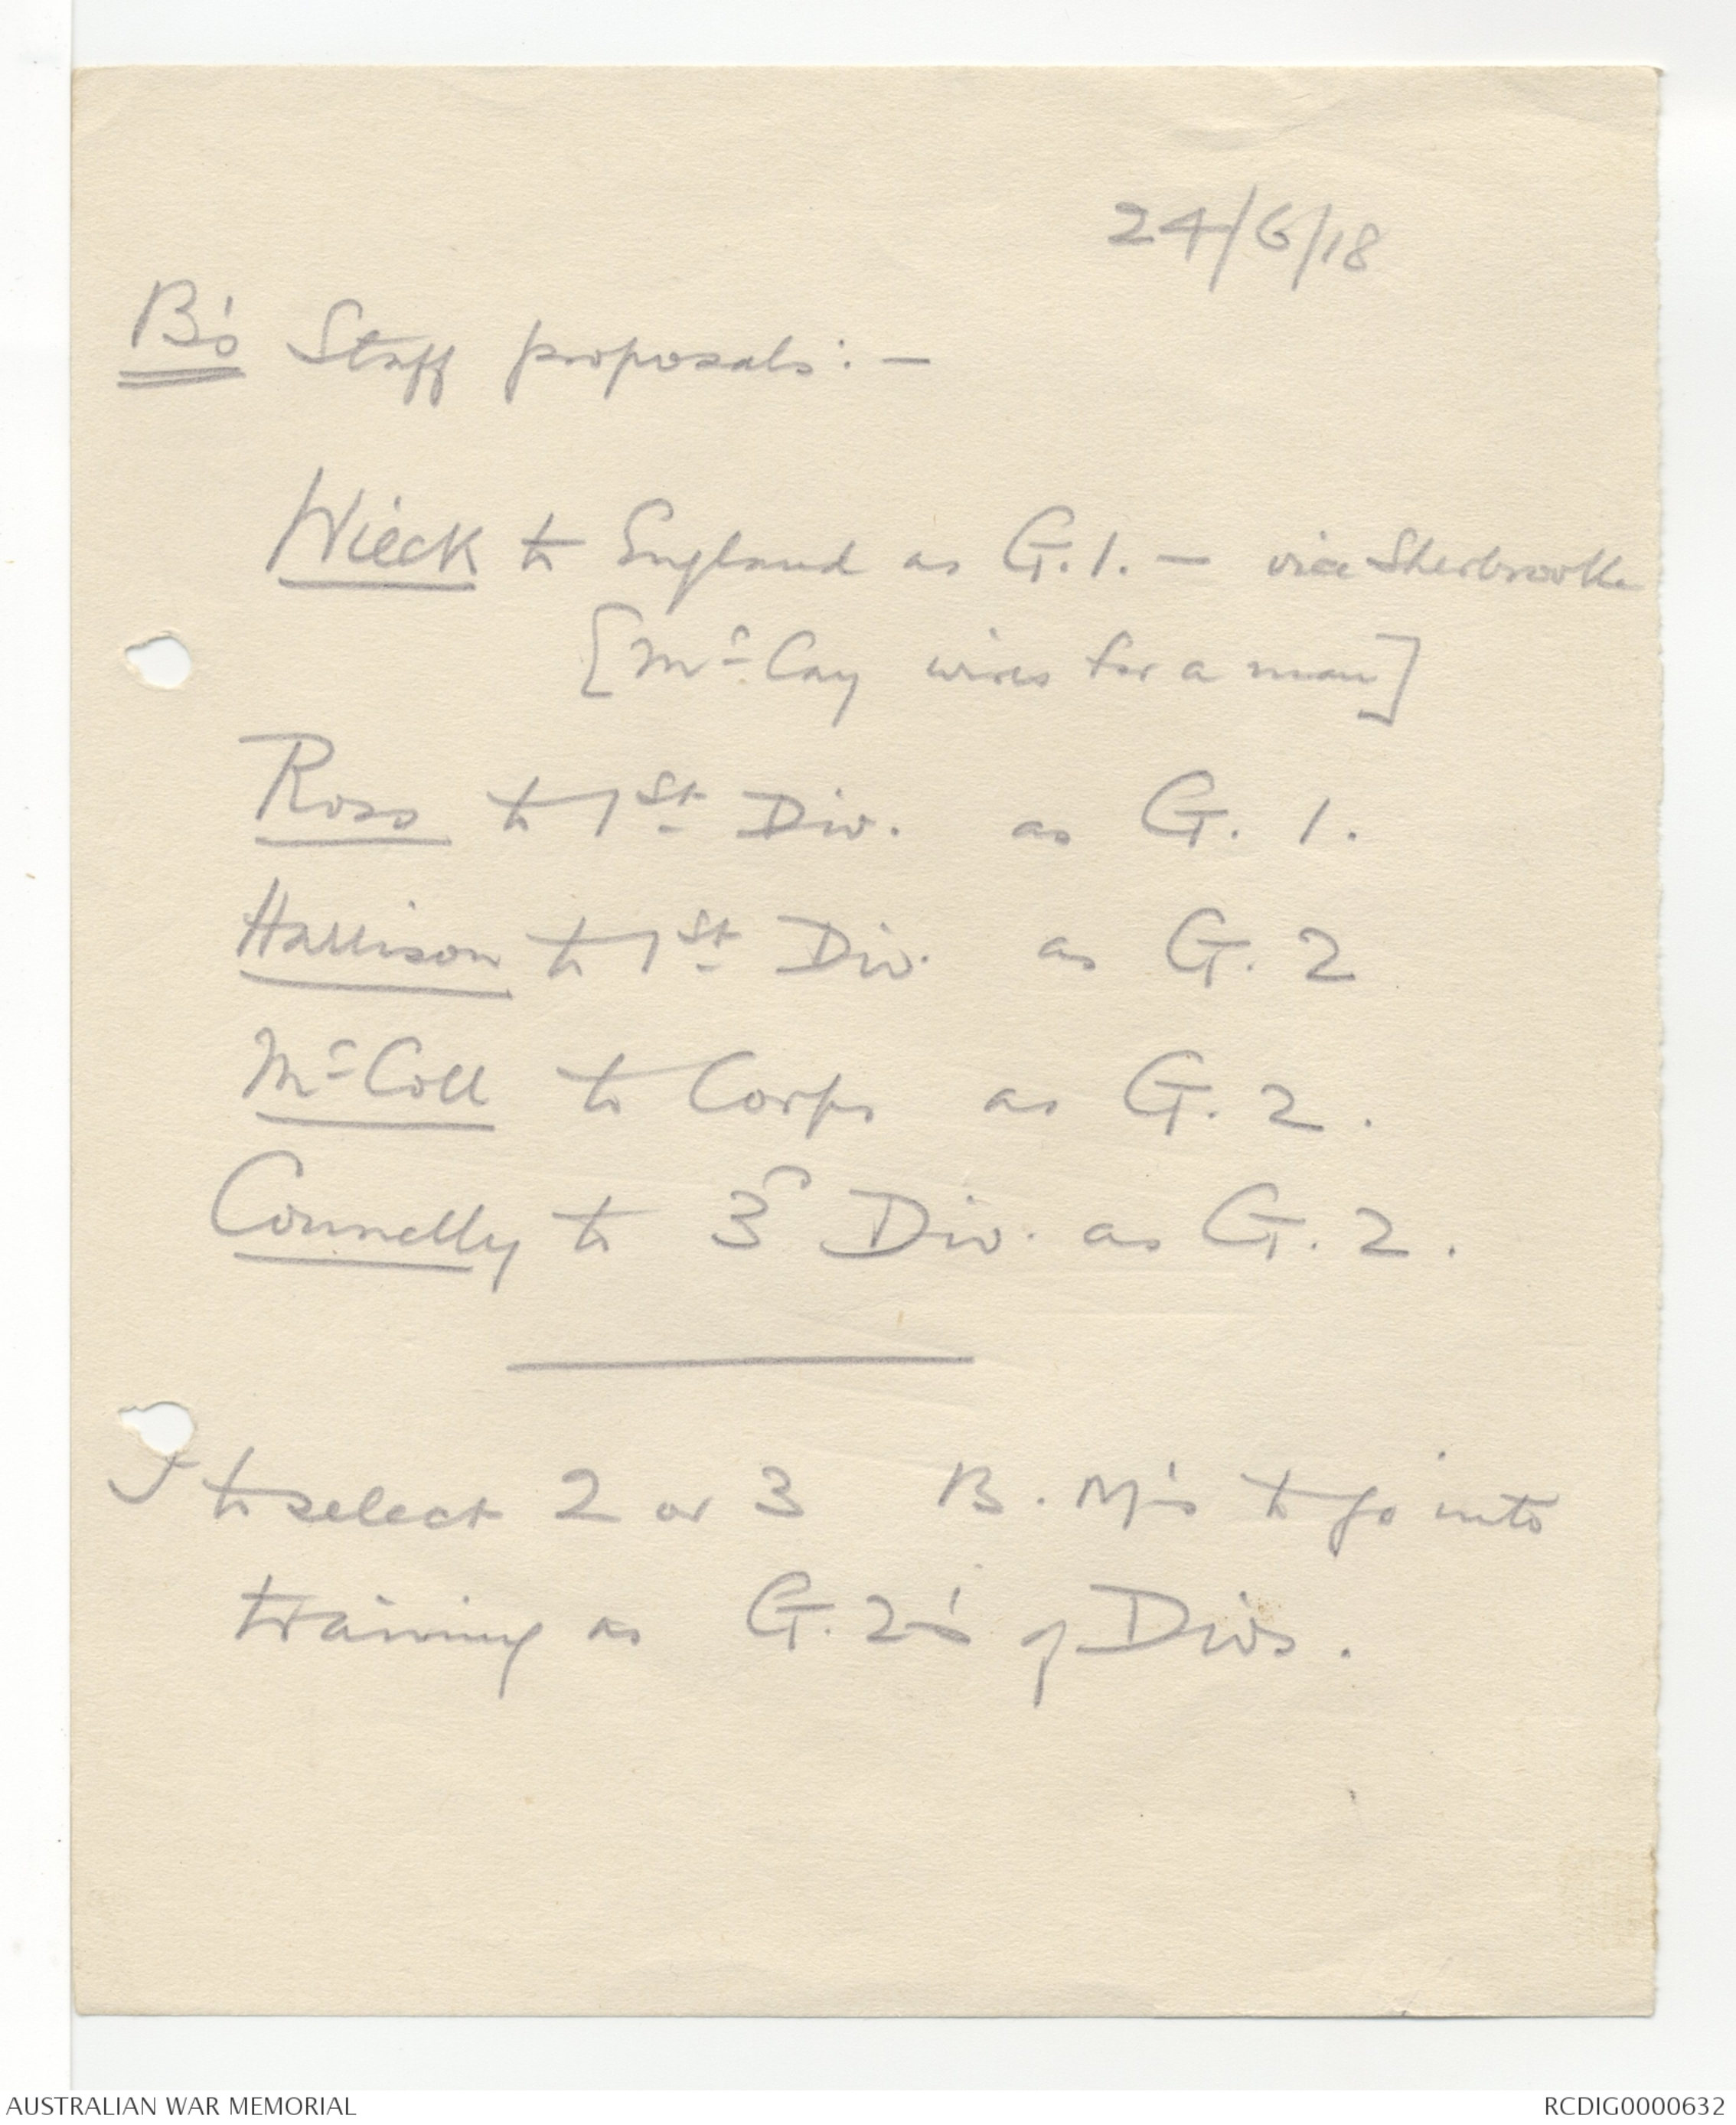 24/6/18
B's Staff proposals:-
Wieck to England as G.1. - vice Sherbrooke
[McCay wires for a man]
Ross to 1st Div. as G. 1.
Harrison to 1st Div. as G. 2
McColl to Corps as G. 2.
Connelly to 3r Div. as G. 2.
I to select 2 or 3 B. M's to go into
training as G. 2's of Divs.
AUSTRALIAN WAR MEMORIAL
RCDIG0000632